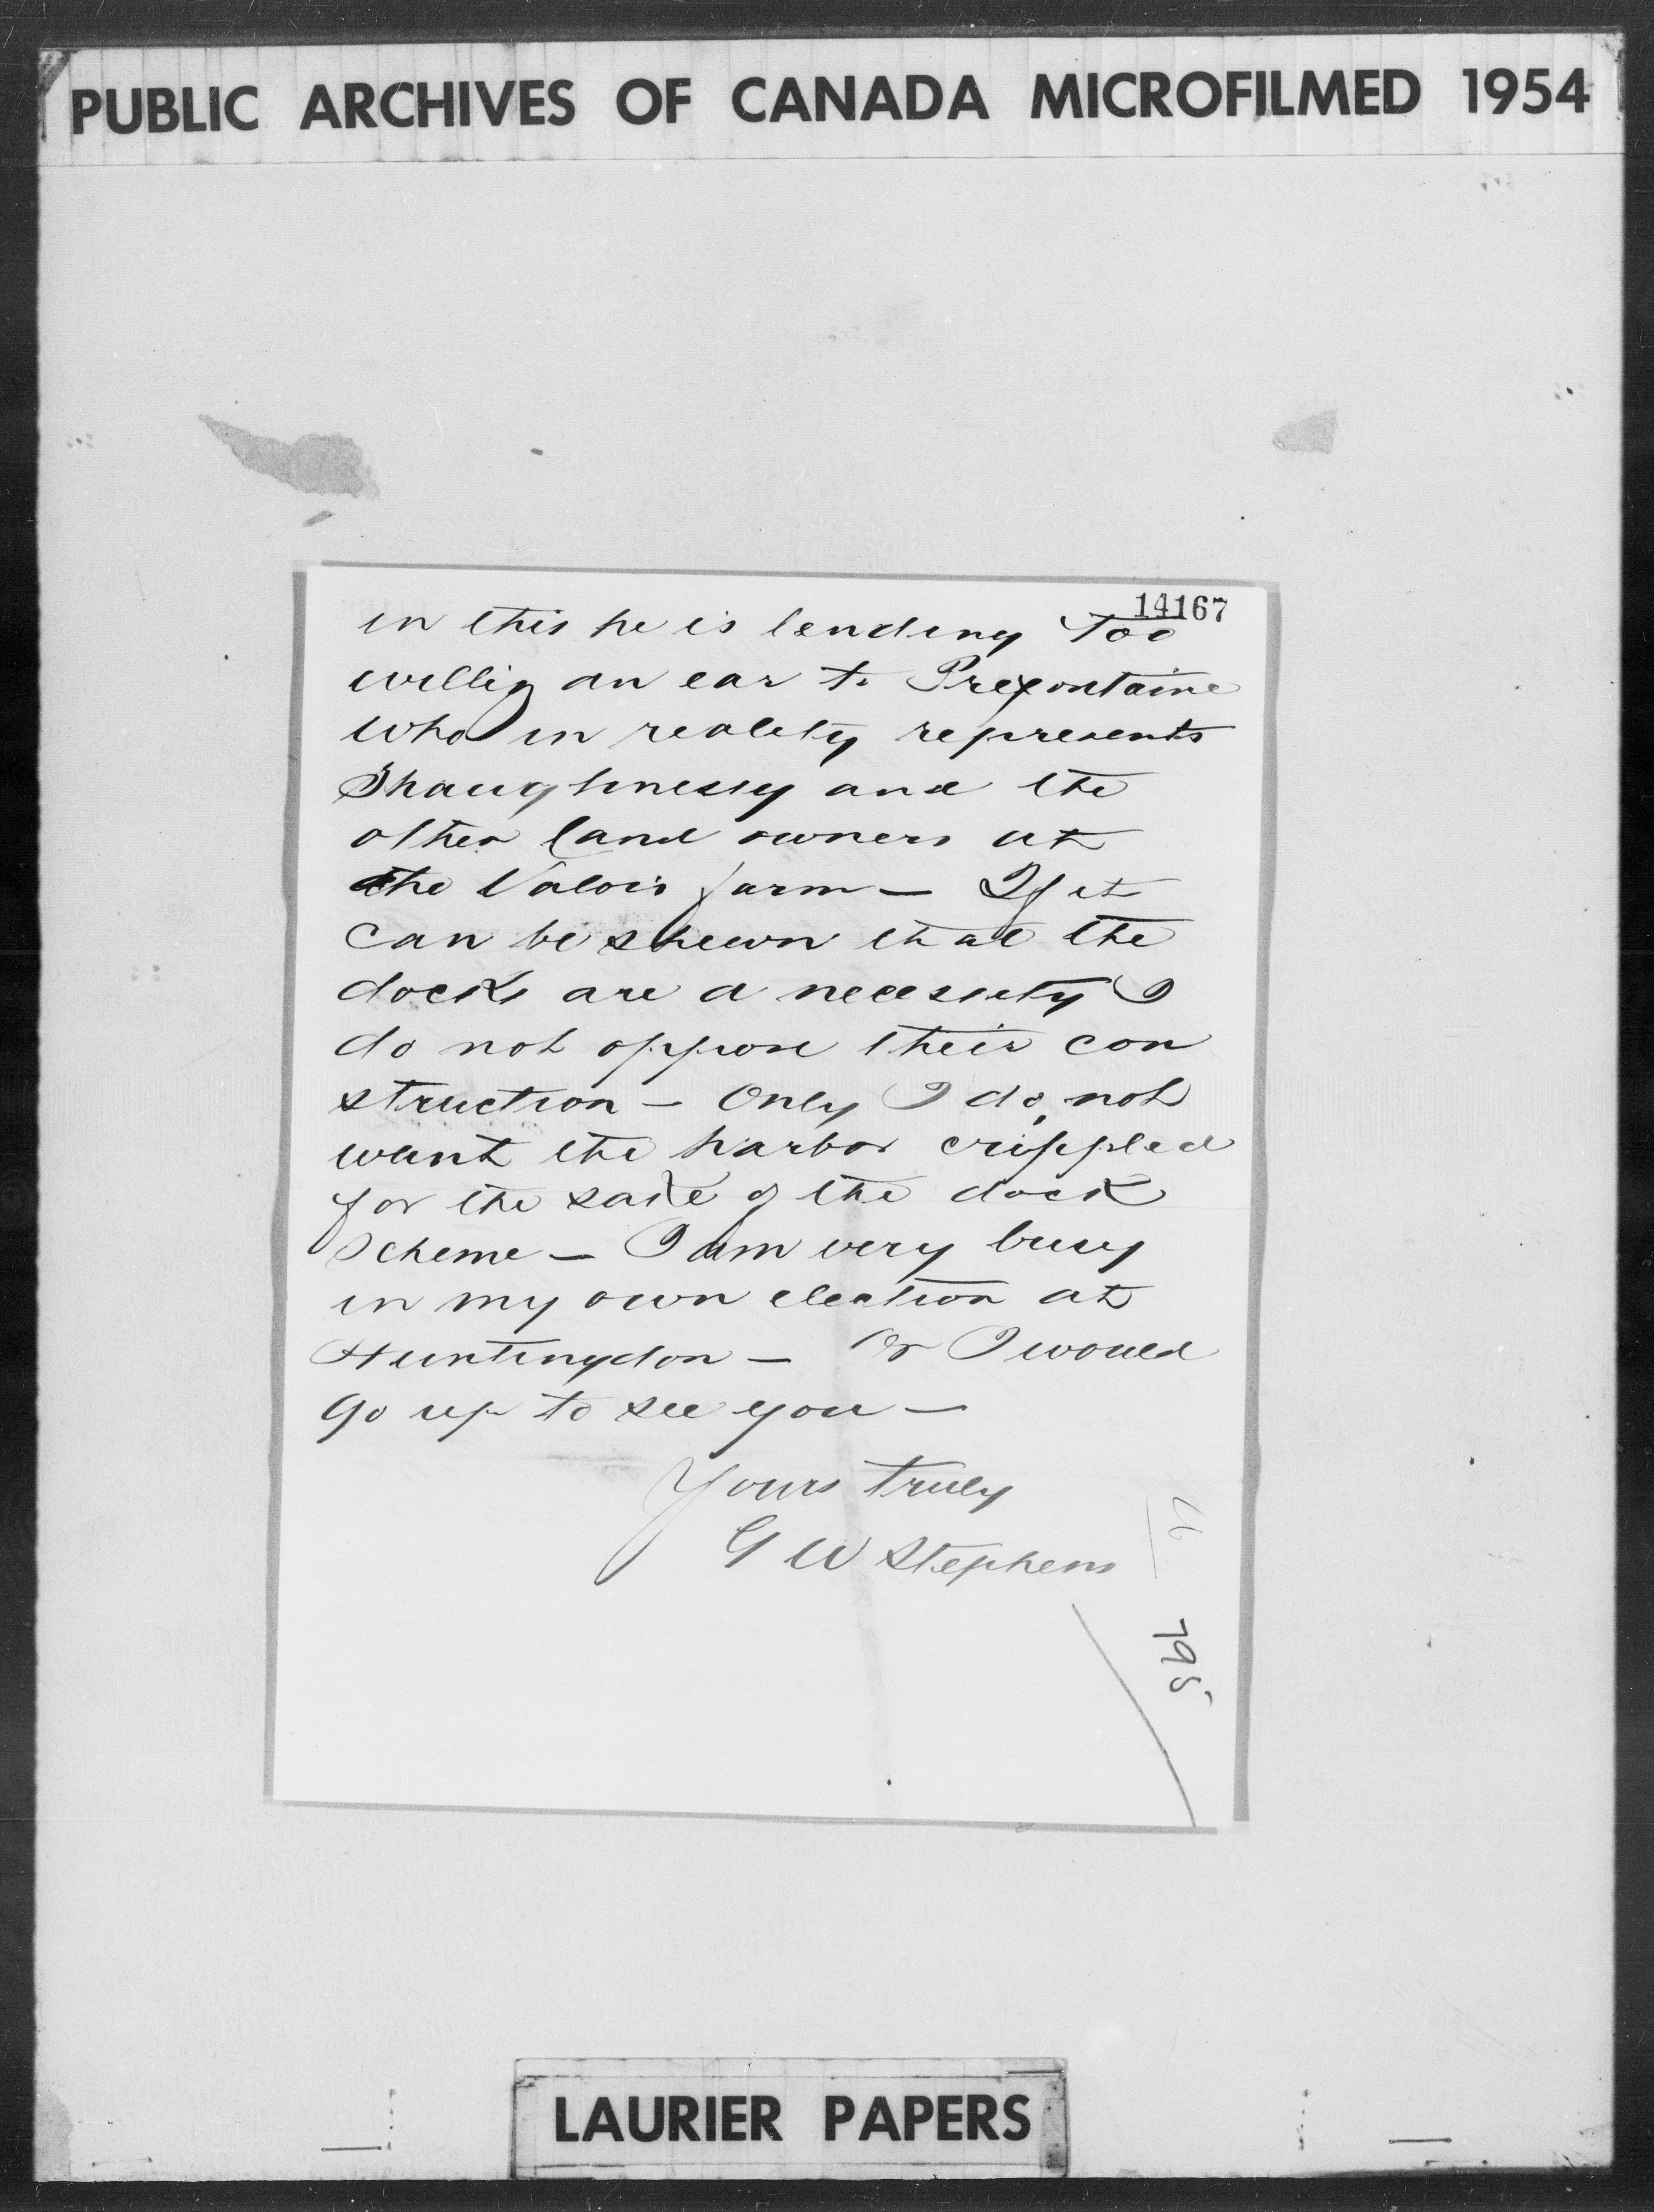 PUBLIC ARCHIVES OF CANADA MICROFILMED 1954
14167
in this he is lending too
willig an ear to Prefontaine
who in reality represents
Shaughnessy and the
other land owners at
the Valois farm — If it
can be shewn that the
docks are a necessity I
do not oppose their con
struction — Only I do not
want the harbor crippled
for the sake of the dock
scheme — I am very busy
in my own election at
Huntingdon — Or I would
go up to see you —
Yours truly
G W Stephens
795
LAURIER PAPERS